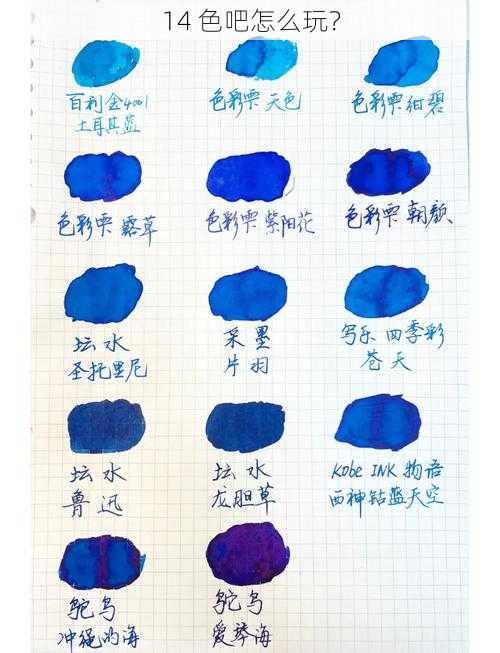 14 色吧怎么玩？
百利金4001
土耳其蓝
色彩雫 天色
色彩雫 绀碧
色彩雫 露草
色彩雫 紫阳花
色彩雫 朝颜
坛水
圣托里尼
采墨
片羽
写乐 四季彩
苍天
坛水
鲁迅
坛水
龙胆草
Kobe INK 物语
西神钻蓝天空
鸵鸟
冲绳的海
鸵鸟
爱琴海